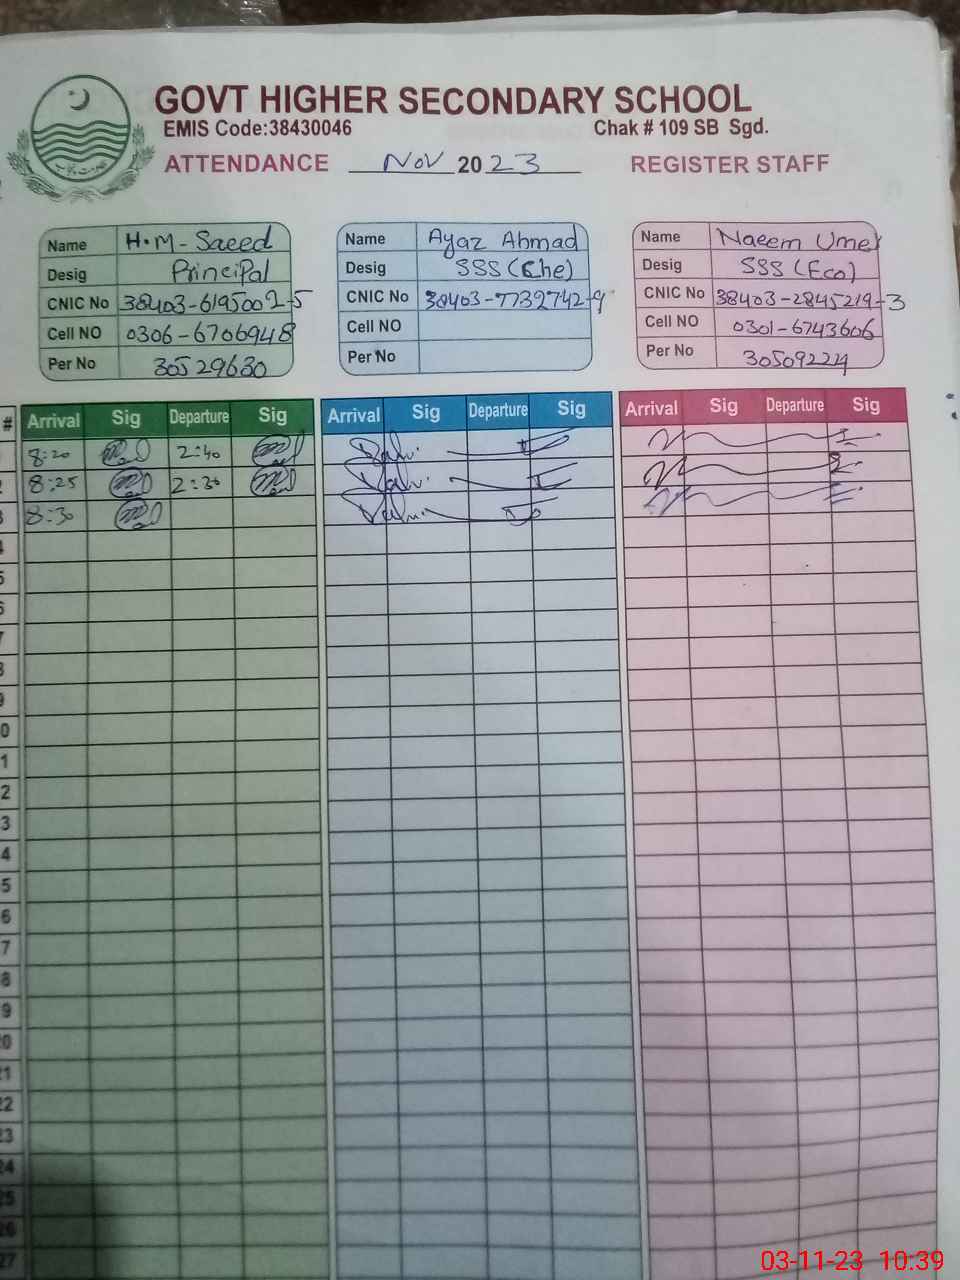 GOVT HIGHER SECONDARY SCHOOL
EMIS Code:38430046 Chak # 109 SB Sgd.
ATTENDANCE Nov 2023 REGISTER STAFF
Name H.M-Saeed
Desig Principal
CNIC No 38403-6195002-5
Cell NO 0306-6706948
Per No 30529630
Name Ayaz Ahmad
Desig SSS (Che)
CNIC No 38403-7732742-9
Cell NO
Per No
Name Naeem Umer
Desig SSS (Eco)
CNIC No 38403-2845219-3
Cell NO 0301-6743606
Per No 30509224
# Arrival Sig Departure Sig Arrival Sig Departure Sig Arrival Sig Departure Sig
8:20 2:40
2 8:25 2:30
3 8:30
4
5
6
7
8
9
0
1
2
3
4
5
6
7
8
9
20
21
22
23
24
25
26
27
03-11-23 10:39